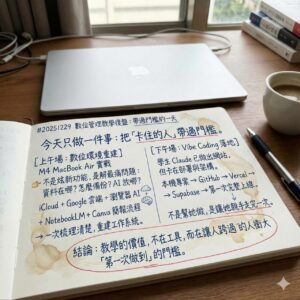 #20251229 數位管理教學復盤：帶過門檻的一天
今天只做一件事：把「卡住的人」帶過門檻。
[上午場：數位環境重建]
M4 MacBook Air 實戰
不是炫新功能，是解最痛問題：
資料在哪？怎麼備份？AI 放哪？
iCloud + Google 雲端 + 瀏覽器 AI
+ NotebookLM + Canva 簡報流程
→ 一次梳理清楚，重建工作系統。
[下午場：Vibe Coding 落地]
學生 Claude 已做出網站，
但卡在部署與架構。
本機專案 → GitHub → Vercel →
Supabase → 第一次完整上線
不是幫她做，是讓她親手走完一次。
結論：教學的價值，不在工具，而在讓人跨過
「第一次做到」的門檻。